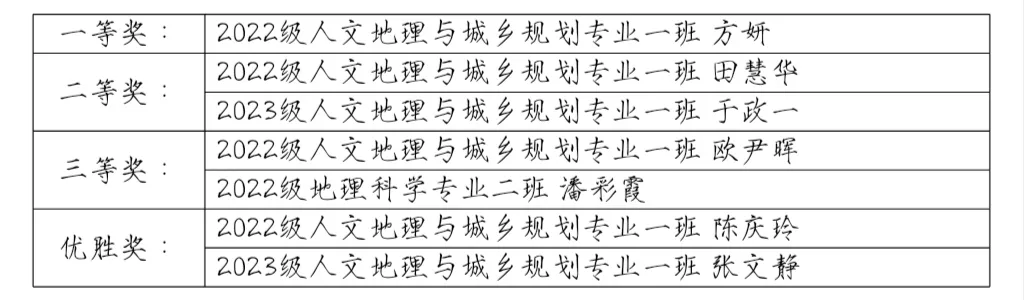 一等奖：
2022级人文地理与城乡规划专业一班 方妍
二等奖：
2022级人文地理与城乡规划专业一班 田慧华
2023级人文地理与城乡规划专业一班 于政一
三等奖：
2022级人文地理与城乡规划专业一班 欧尹晖
2022级地理科学专业二班 潘彩霞
优胜奖：
2022级人文地理与城乡规划专业一班 陈庆玲
2023级人文地理与城乡规划专业一班 张文静